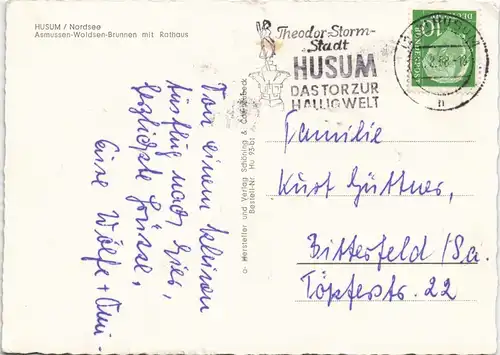 HUSUM / Nordsee
Asmussen-Woldsen-Brunnen mit Rathaus
Theodor-Storm-
Stadt
HUSUM
DAS TOR ZUR
HALLIGWELT
10
DEUTSCHE BUNDESPOST
Hersteller und Verlag Schöning &
Bestell-Nr. Hu
Von einem kleinen
Ausflug nach hier,
herzlichste Grüsse,
Eure Wölfe +
Familie
Kurt Güttner,
Bitterfeld/Sa.
Töpferstr. 22